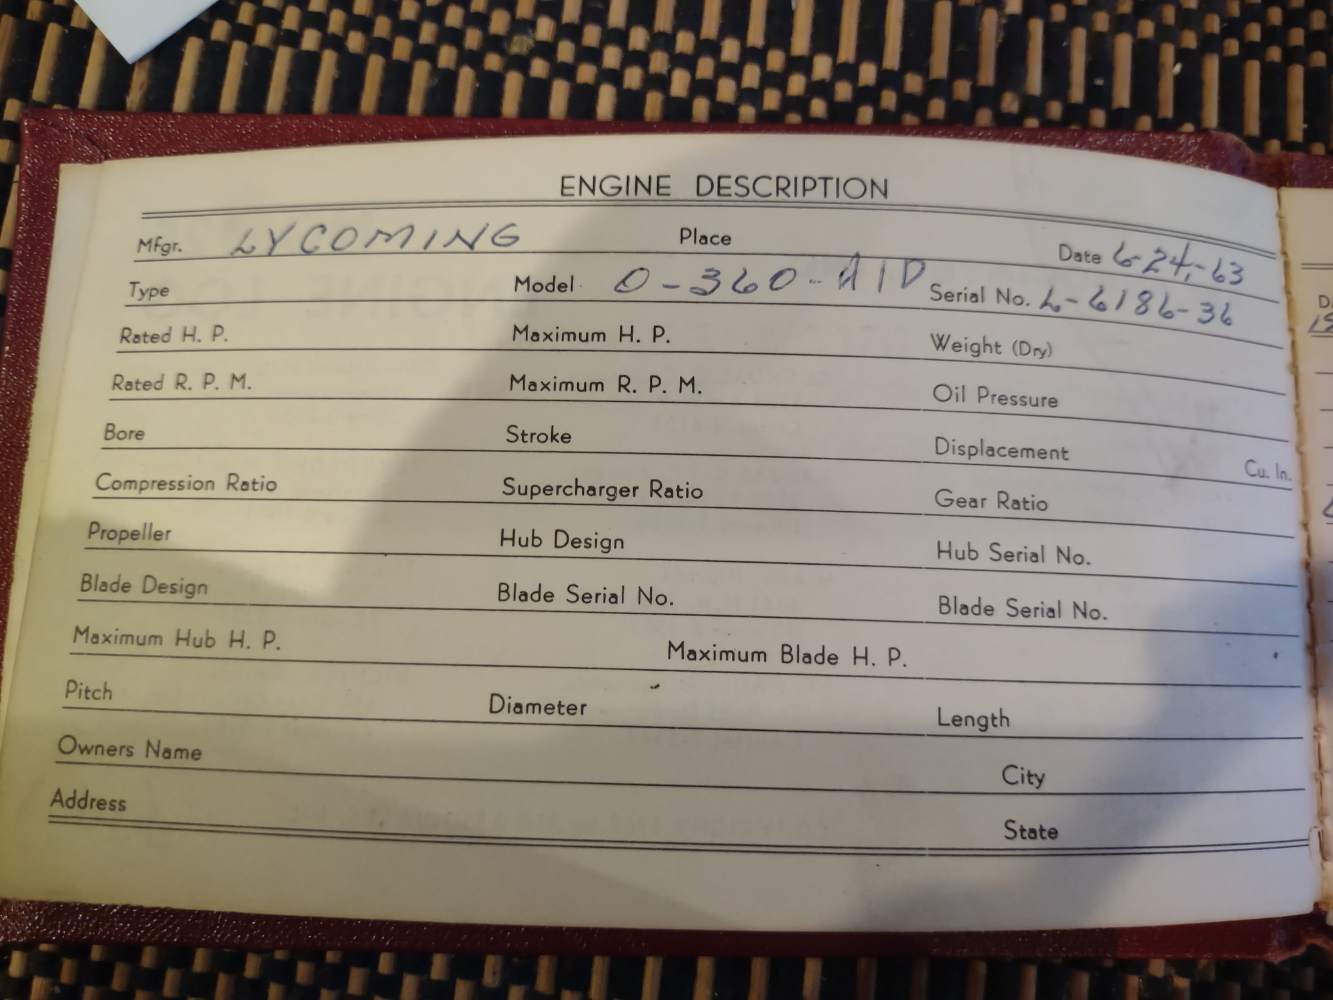 ENGINE DESCRIPTION
Mfgr. LYCOMING Place Date 6-24,-63
Type Model O-360-A1D Serial No. L-6186-36
Rated H. P. Maximum H. P. Weight (Dry)
Rated R. P. M. Maximum R. P. M. Oil Pressure
Bore Stroke Displacement Cu. In.
Compression Ratio Supercharger Ratio Gear Ratio
Propeller Hub Design Hub Serial No.
Blade Design Blade Serial No. Blade Serial No.
Maximum Hub H. P. Maximum Blade H. P.
Pitch Diameter Length
Owners Name City
Address State